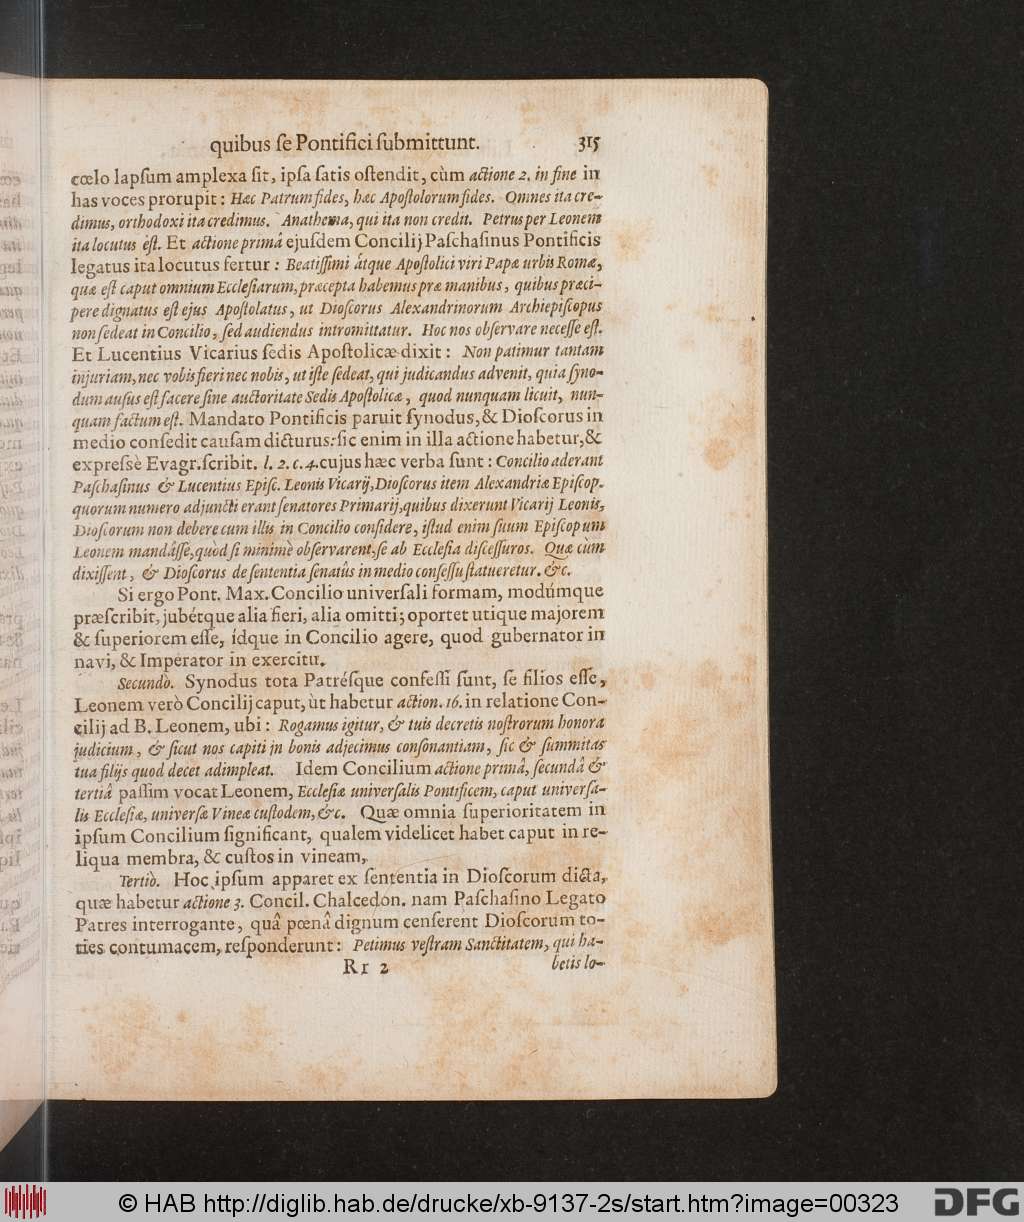 quibus ſe Pontifici ſubmittunt. 315
cœlo lapſum amplexa ſit, ipſa ſatis oſtendit, cùm actione 2. in fine in
has voces prorupit: Hæc Patrum fides, hæc Apoſtolorum fides. Omnes ita cre-
dimus, orthodoxi ita credimus. Anathema, qui ita non credit. Petrus per Leonem
ita locutus eſt. Et actione primâ ejuſdem Concilij Paſchaſinus Pontificis
legatus ita locutus fertur: Beatiſſimi átque Apoſtolici viri Papæ urbis Romæ,
quæ eſt caput omnium Eccleſiarum, præcepta habemus præ manibus, quibus præci-
pere dignatus eſt ejus Apoſtolatus, ut Dioſcorus Alexandrinorum Archiepiſcopus
non ſedeat in Concilio, ſed audiendus intromittatur. Hoc nos obſervare neceſſe eſt.
Et Lucentius Vicarius ſedis Apoſtolicæ dixit: Non patimur tantam
injuriam, nec vobis fieri nec nobis, ut iſte ſedeat, qui judicandus advenit, quia ſyno-
dum auſus eſt facere ſine auctoritate Sedis Apoſtolicæ, quod nunquam licuit, nun-
quam factum eſt. Mandato Pontificis paruit ſynodus, & Dioſcorus in
medio conſedit cauſam dicturus: ſic enim in illa actione habetur, &
expreſsè Evagr. ſcribit. l. 2. c. 4. cujus hæc verba ſunt: Concilio aderant
Paſchaſinus & Lucentius Epiſc. Leonis Vicarij, Dioſcorus item Alexandriæ Epiſcop.
quorum numero adjuncti erant ſenatores Primarij, quibus dixerunt Vicarij Leonis,
Dioſcorum non debere cum illis in Concilio conſidere, iſtud enim ſuum Epiſcopum
Leonem mandâſſe, quòd ſi minimè obſervarent, ſe ab Eccleſia diſceſſuros. Quæ cùm
dixiſſent, & Dioſcorus de ſententia ſenatûs in medio conſeſſu ſtatueretur. &c.
Si ergo Pont. Max. Concilio univerſali formam, modúmque
præſcribit, jubétque alia fieri, alia omitti; oportet utique majorem
& ſuperiorem eſſe, ídque in Concilio agere, quod gubernator in
navi, & Imperator in exercitu.
Secundò. Synodus tota Patréſque confeſſi ſunt, ſe filios eſſe,
Leonem verò Concilij caput, ùt habetur action. 16. in relatione Con-
cilij ad B. Leonem, ubi: Rogamus igitur, & tuis decretis noſtrorum honora
judicium, & ſicut nos capiti in bonis adjecimus conſonantiam, ſic & ſummitas
tua filijs quod decet adimpleat. Idem Concilium actione primâ, ſecundâ &
tertiâ paſſim vocat Leonem, Eccleſiæ univerſalis Pontificem, caput univerſa-
lis Eccleſiæ, univerſæ Vineæ cuſtodem, &c. Quæ omnia ſuperioritatem in
ipſum Concilium ſignificant, qualem videlicet habet caput in re-
liqua membra, & cuſtos in vineam,
Tertiò. Hoc ipſum apparet ex ſententia in Dioſcorum dicta,
quæ habetur actione 3. Concil. Chalcedon. nam Paſchaſino Legato
Patres interrogante, quâ pœnâ dignum cenſerent Dioſcorum to-
ties contumacem, reſponderunt: Petimus veſtram Sanctitatem, qui ha-
Rr 2 betis lo-
© HAB http://diglib.hab.de/drucke/xb-9137-2s/start.htm?image=00323 DFG